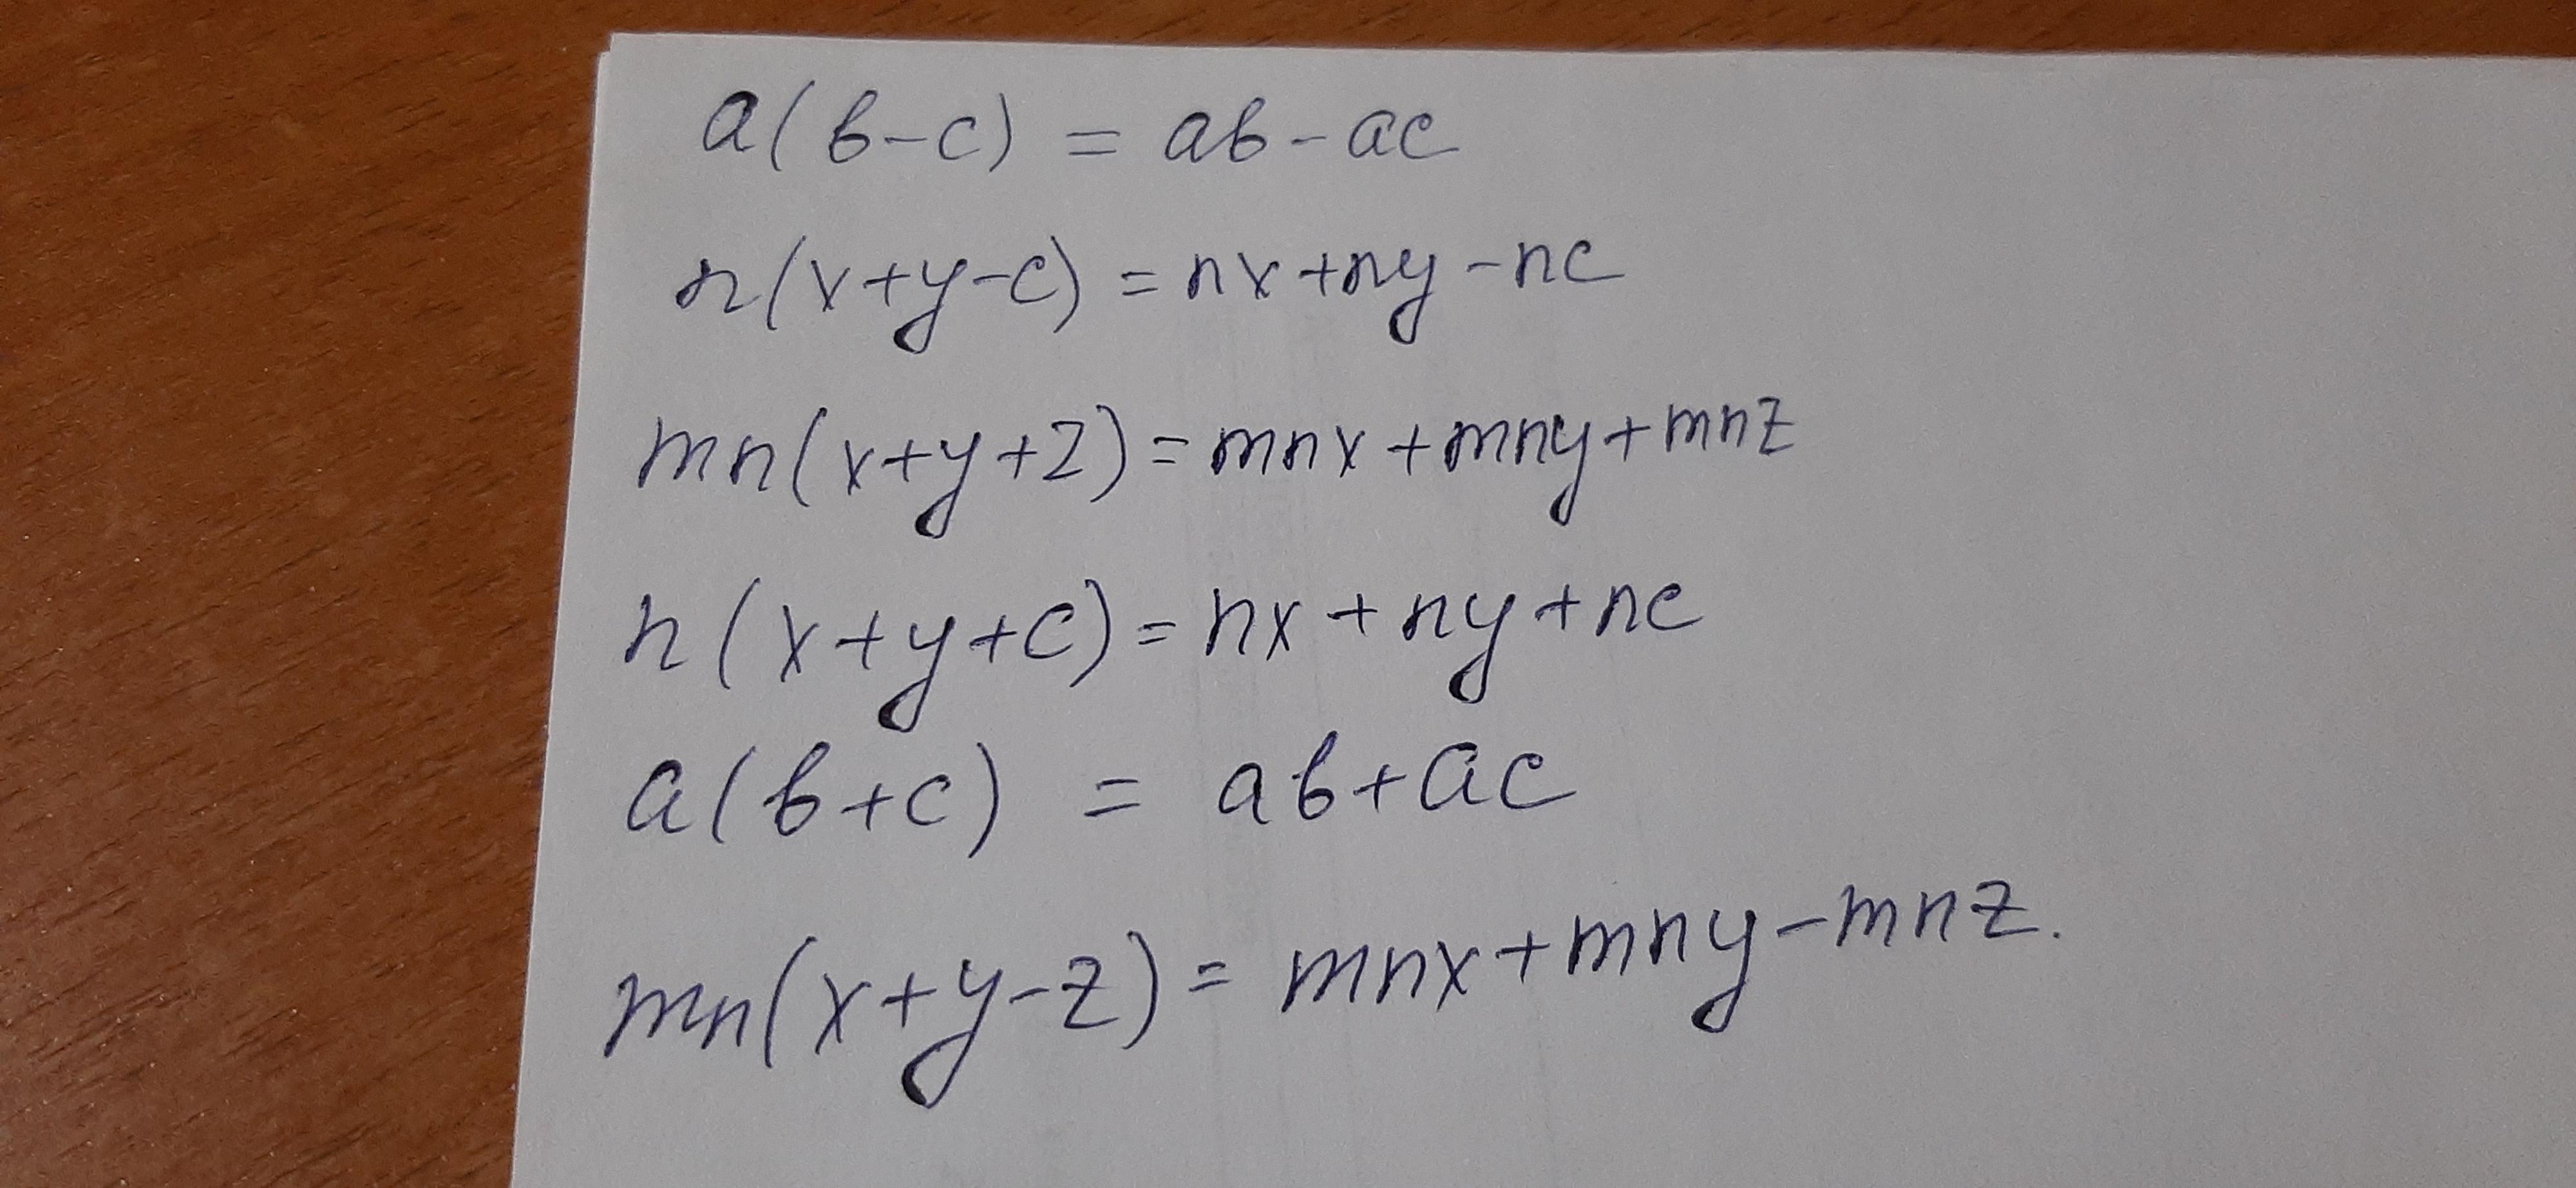 a(b-c) = ab-ac
n(x+y-c) = nx+ny-nc
mn(x+y+z) = mnx+mny+mnz
n(x+y+c) = nx+ny+nc
a(b+c) = ab+ac
mn(x+y-z) = mnx+mny-mnz.